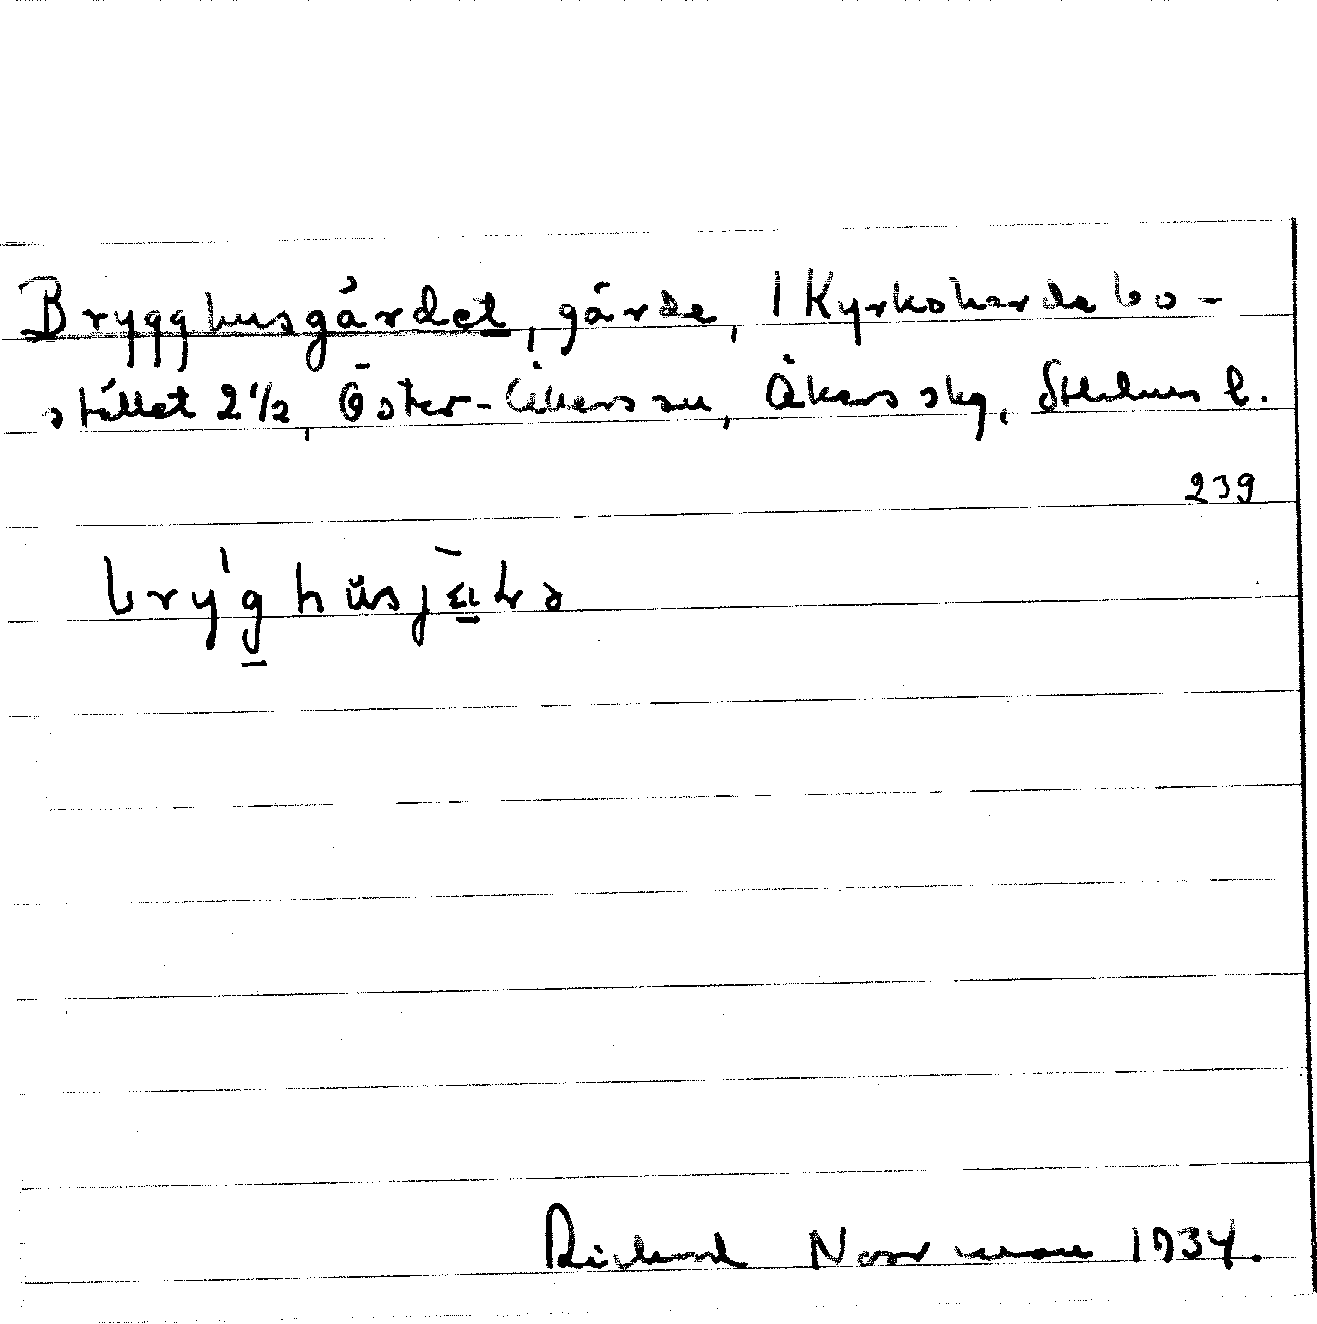 Brygghusgärdet, gärde, 1 Kyrkoherdebo-
stället 2 1/2, Öster-Åkers sn, Åkers skg, Sthlms l.
239
Richard Norrman 1934.